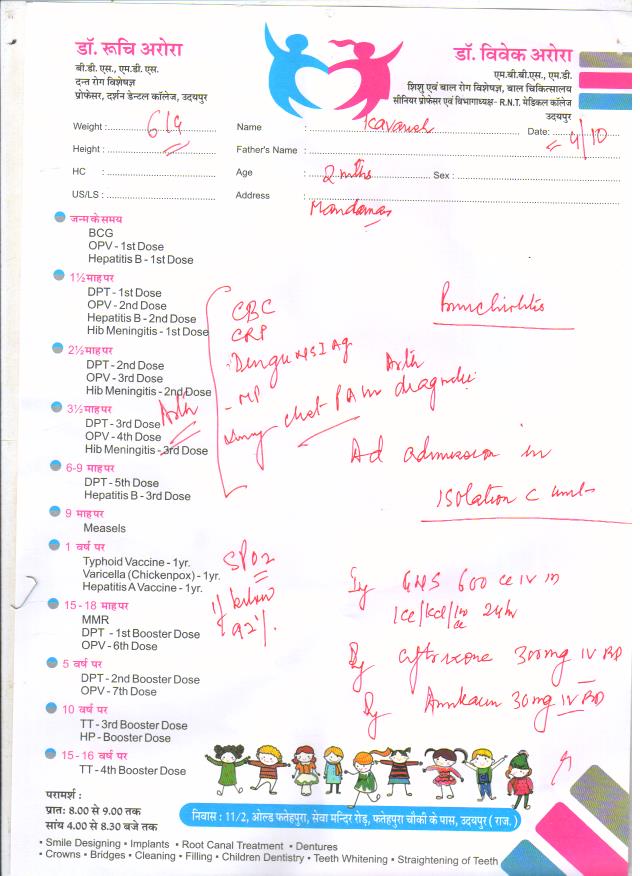 डॉ. रूचि अरोरा
बी.डी.एस., एम.डी.एस.
दन्त रोग विशेषज्ञ
प्रोफेसर, दर्शन डेन्टल कॉलेज, उदयपुर
डॉ. विवेक अरोरा
एम.बी.बी.एस., एम.डी.
शिशु एवं बाल रोग विशेषज्ञ, बाल चिकित्सालय
सीनियर प्रोफेसर एवं विभागाध्यक्ष- R.N.T. मेडिकल कॉलेज
उदयपुर
Weight : Name : Date: 9/10
Height : Father's Name :
HC : Age : 2 mths Sex :
US/LS : Address :
जन्म के समय
BCG
OPV - 1st Dose
Hepatitis B - 1st Dose
1½ माह पर
DPT - 1st Dose
OPV - 2nd Dose
Hepatitis B - 2nd Dose
Hib Meningitis - 1st Dose
2½ माह पर
DPT - 2nd Dose
OPV - 3rd Dose
Hib Meningitis - 2nd Dose
3½ माह पर
DPT - 3rd Dose
OPV - 4th Dose
Hib Meningitis - 3rd Dose
6-9 माह पर
DPT - 5th Dose
Hepatitis B - 3rd Dose
9 माह पर
Measels
1 वर्ष पर
Typhoid Vaccine - 1yr.
Varicella (Chickenpox) - 1yr.
Hepatitis A Vaccine - 1yr.
15 - 18 माह पर
MMR
DPT - 1st Booster Dose
OPV - 6th Dose
5 वर्ष पर
DPT - 2nd Booster Dose
OPV - 7th Dose
10 वर्ष पर
TT - 3rd Booster Dose
HP - Booster Dose
15-16 वर्ष पर
TT - 4th Booster Dose
CBC
CRP
MP
SPO2
if below
92%.
Ad admission in
Isolation C unit
600 cc IV
300mg IV BD
30mg IV BD
परामर्श :
प्रातः 8.00 से 9.00 तक
सांय 4.00 से 8.30 बजे तक
निवास : 11/2, ओल्ड फतेहपुरा, सेवा मन्दिर रोड़, फतेहपुरा चौकी के पास, उदयपुर ( राज. )
• Smile Designing • Implants • Root Canal Treatment • Dentures
• Crowns • Bridges • Cleaning • Filling • Children Dentistry • Teeth Whitening • Straightening of Teeth